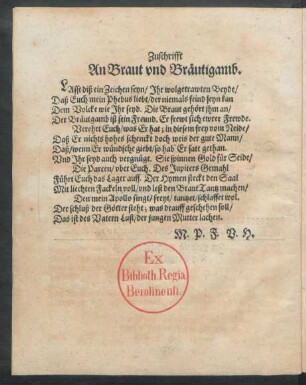 Zuschrifft
An Braut vnd Bräutigamb.
LAsst diß ein Zeichen seyn/ Ihr wolgetrawten Beyde/
Daß Euch mein Phebus liebt/ der niemals feind seyn kan
Dem Volcke wie Ihr seyd. Die Braut gehört jhm an/
Der Bräutigamb ist sein Freund. Er frewt sich ewrer Frewde.
Verehrt Euch/ was Er hat; in diesem frey vom Neide/
Daß Er nichts hohes schenckt doch weis der gute Mann/
Daß/ wenn Er wündsche giebt/ so hab Er satt gethan.
Vnd Ihr seyd auch vergnügt. Sie spinnen Gold für Seide/
Die Parcen/ vber Euch. Des Jupiters Gemahl
Führt Euch das Lager auff. Der Hymen steckt den Saal
Mit liechten Fackeln voll/ vnd lest den Braut Tantz machen/
Den mein Apollo singt/ freyt/ tantzet/ schlaffet wol.
Der schluß der Götter steht; was drauff geschehen soll/
Das ist des Vatern Lust/ der jungen Mutter lachen.
M. P. F. V. H.
Ex
Biblioth. Regia
Berolinensi.